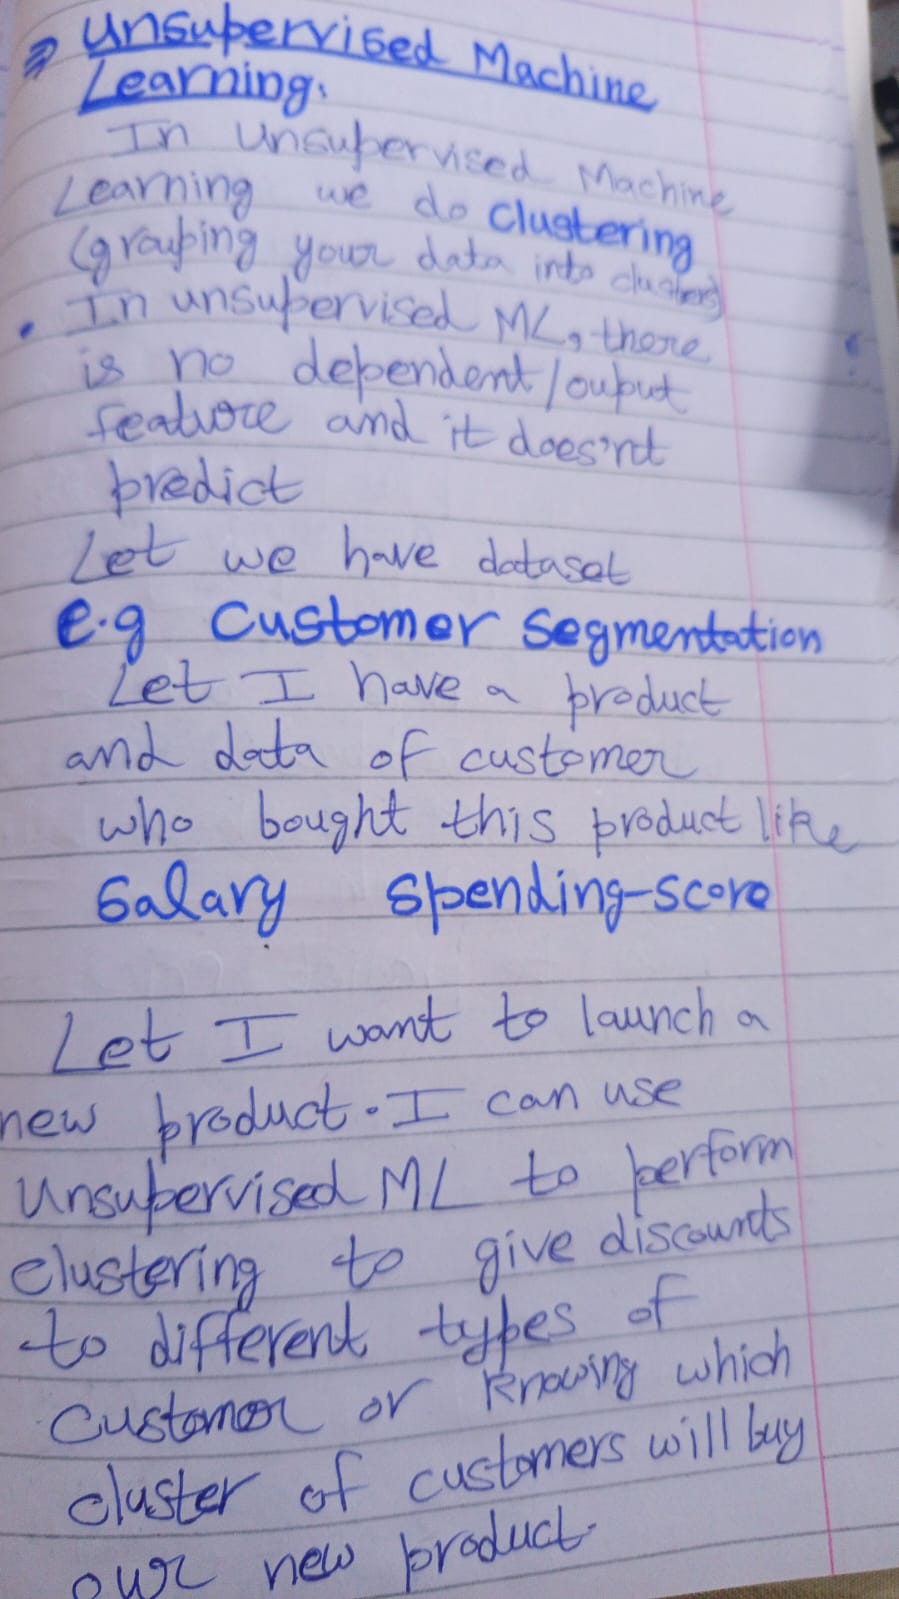 ⇒ Unsupervised Machine
Learning:
In Unsupervised Machine
Learning we do Clustering
(grouping your data into clusters)
• In unsupervised ML, there
is no dependent/ouput
feature and it does'nt
predict
Let we have dataset
e.g Customer Segmentation
Let I have a product
and data of customer
who bought this product like
Salary Spending-score
Let I want to launch a
new product. I can use
Unsupervised ML to perform
clustering to give discounts
to different types of
customer or knowing which
cluster of customers will buy
our new product.